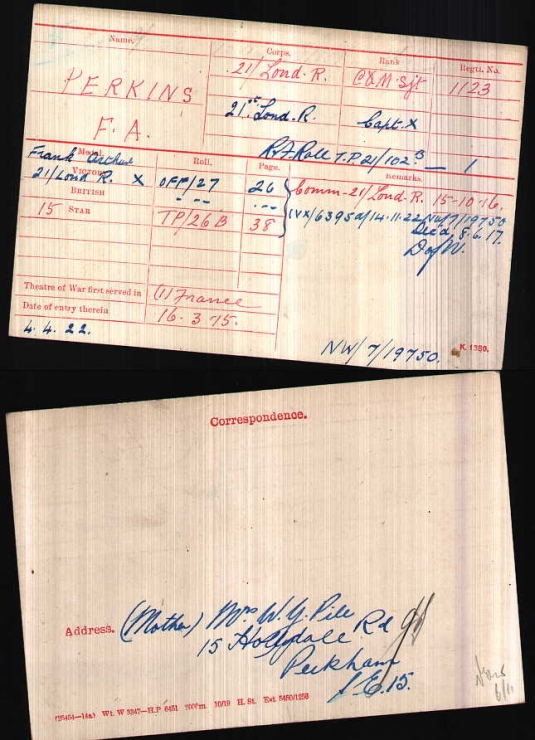 Name. Corps. Rank Regtl. No.
PERKINS 21/Lond. R. C Q M Sjt 1123
F. A. 21st Lond. R. Capt. X
R.F. Roll T.P. 21/102 B — 1
Medal. Roll. Page. Remarks.
Frank Arthur
VICTORY
21/Lond R. X OFF/27 26 Comm-21/Lond. R. 15-10-16.
BRITISH - - - - IVX/6395d/14.11.22 NW/7/19750
15 STAR TP/26 B 38 Died 8.6.17.
DofW.
Theatre of War first served in (1) France
Date of entry therein 16.3.15.
4.4.22.
NW/7/19750.
K. 1380.
Correspondence.
Address. (Mother) Mrs W. Y. Pile
15 Hollydale Rd
Peckham
S.E. 15.
(25454—14a) Wt. W 5347—H.P 6451 7000m 10/19 H. St. Est 5450/1258